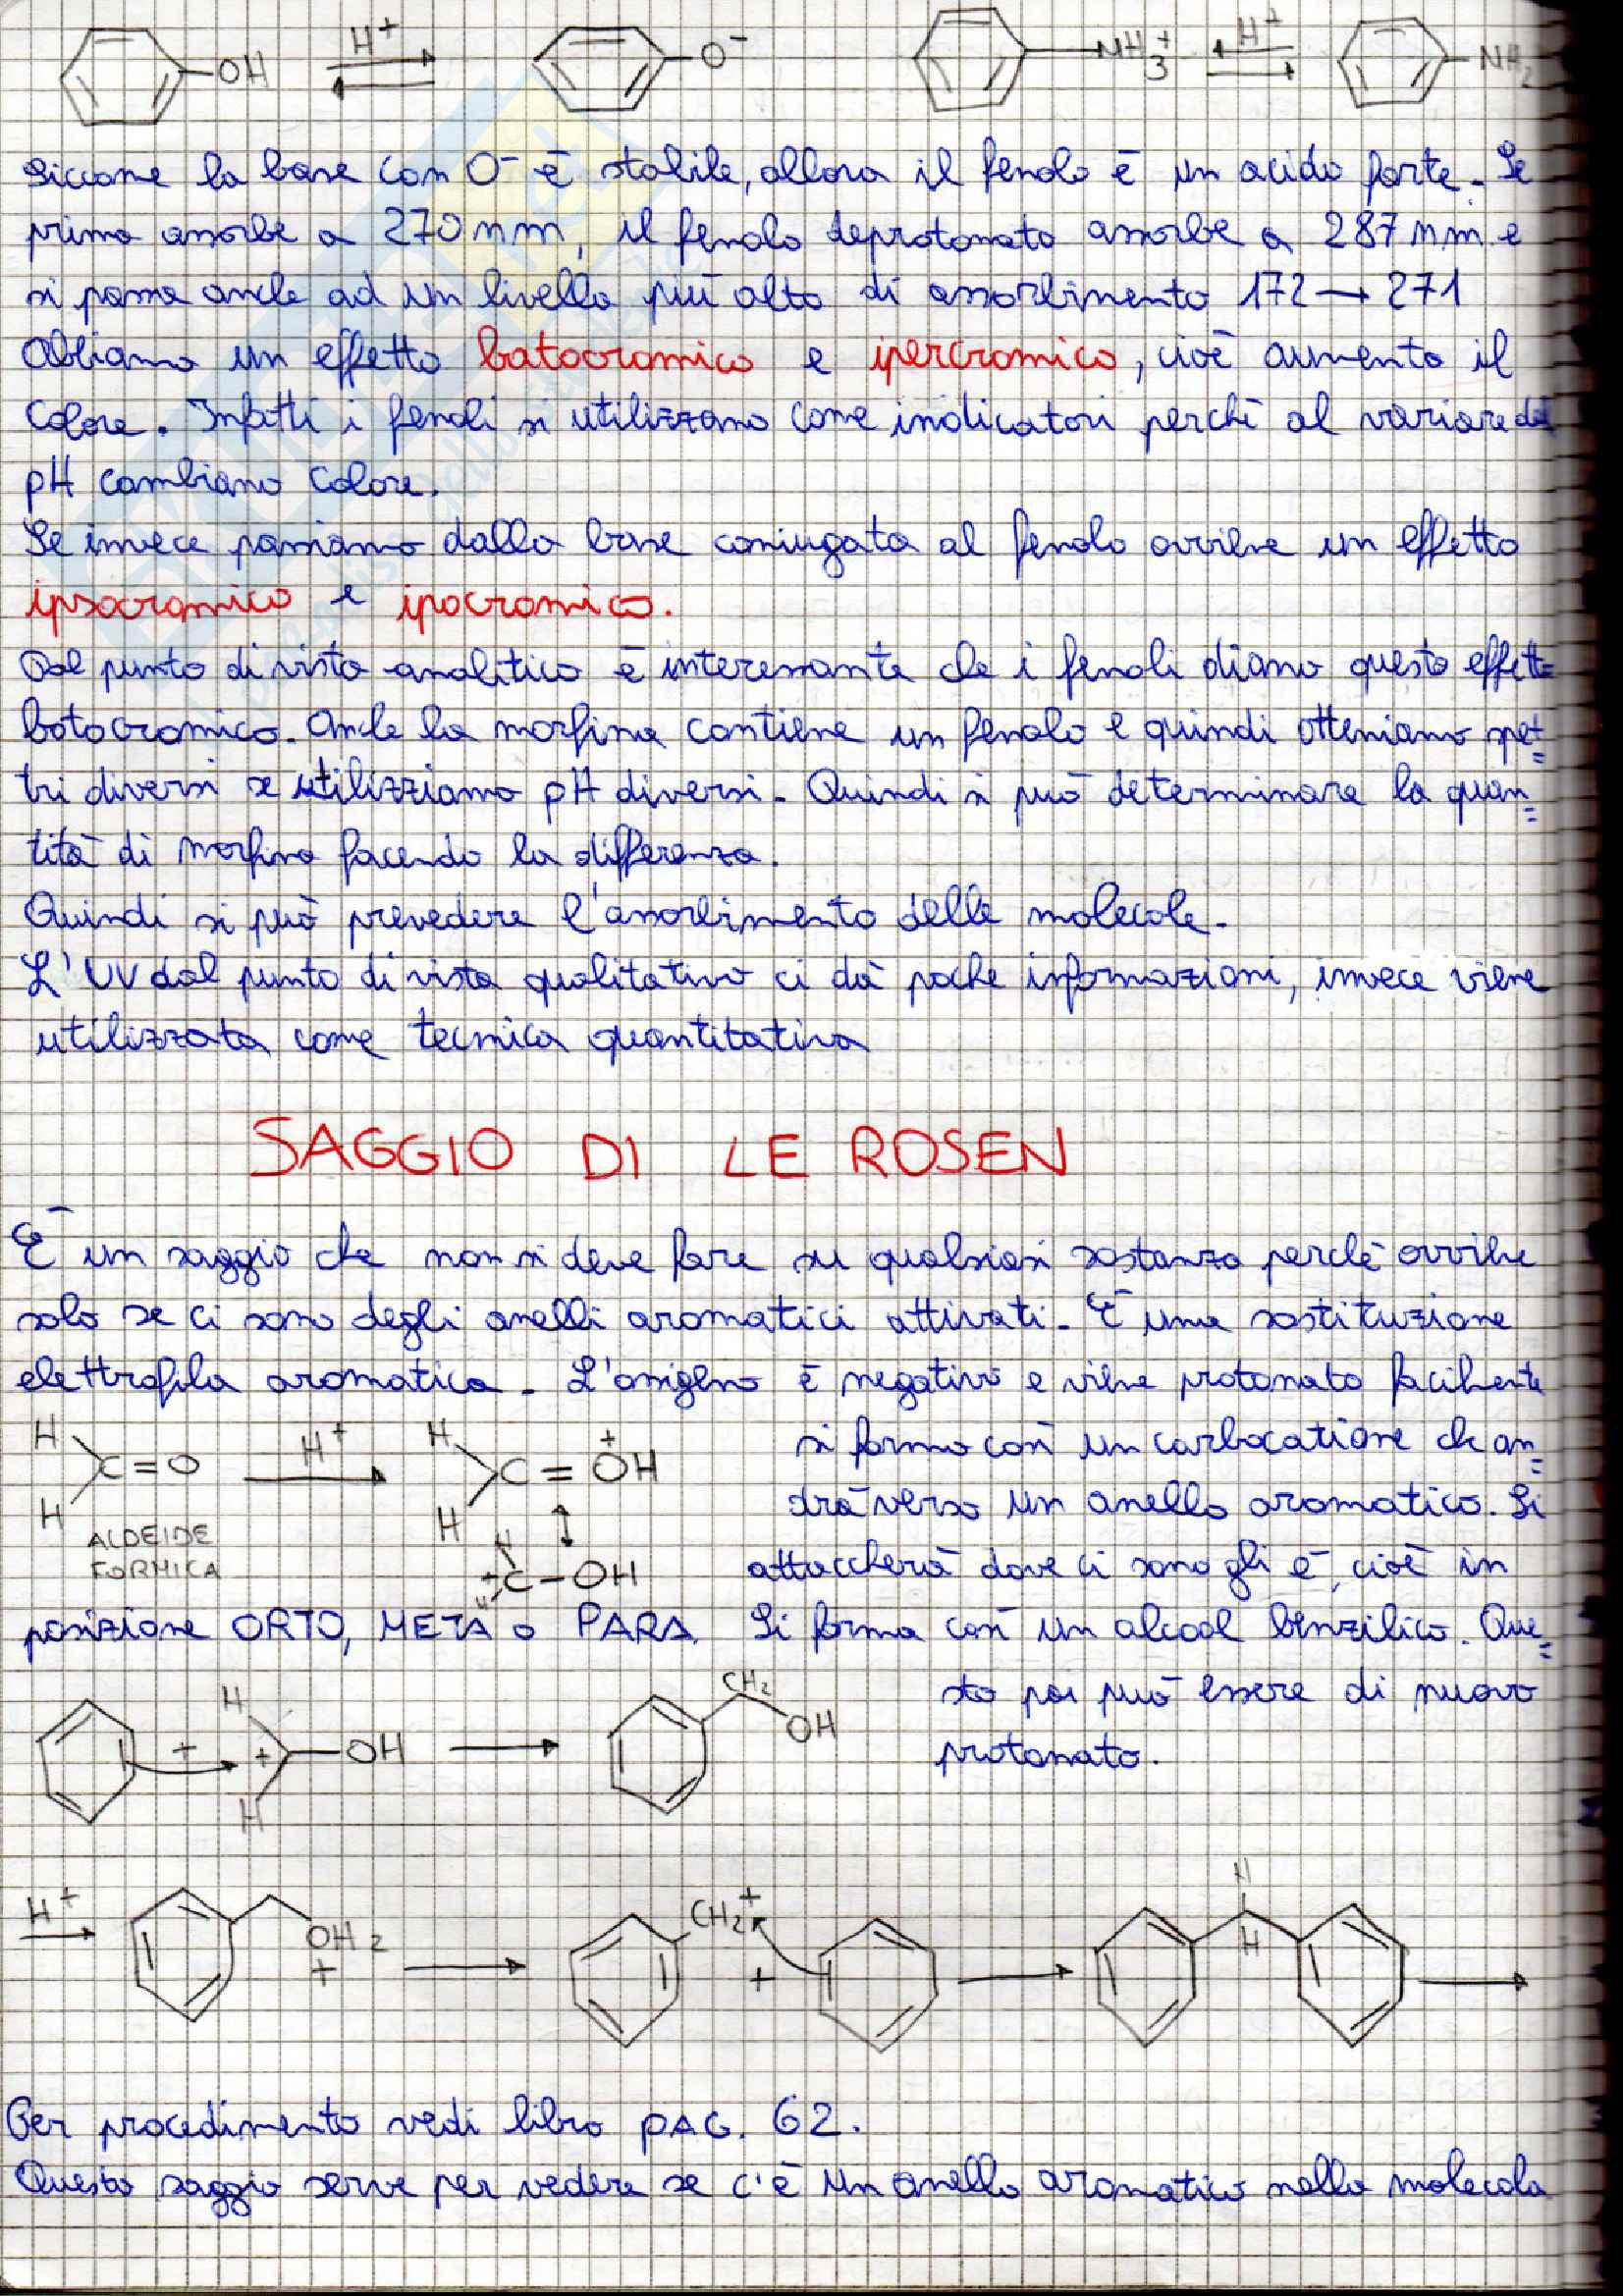 OH H+ O- NH3+ H+ NH2
Siccome la base con O- è stabile, allora il fenolo è un acido forte. Se
prima assorbe a 270 nm, il fenolo deprotonato assorbe a 287 nm e
si passa anche ad un livello più alto di assorbimento 172 → 271
Abbiamo un effetto batocromico e ipercromico, cioè aumenta il
colore. Infatti i fenoli si utilizzano come indicatori perché al variare del
pH cambiano colore.
Se invece passiamo dalla base coniugata al fenolo avviene un effetto
ipsocromico e ipocromico.
Dal punto di vista analitico è interessante che i fenoli diano questo effett=
batocromico. Anche la morfina contiene un fenolo e quindi otteniamo spet=
tri diversi se utilizziamo pH diversi. Quindi si può determinare la quan=
tità di morfina facendo la differenza.
Quindi si può prevedere l'assorbimento delle molecole.
L'UV dal punto di vista qualitativo ci dà poche informazioni, invece viene
utilizzata come tecnica quantitativa
SAGGIO DI LE ROSEN
È un saggio che non si deve fare su qualsiasi sostanza perché avviene
solo se ci sono degli anelli aromatici attivati. È una sostituzione
elettrofila aromatica. L'ossigeno è negativo e viene protonato facilmente
H H C=O H+ H H C=OH +
si forma così un carbocatione che an=
drà verso un anello aromatico. Si
ALDEIDE
FORMICA
H +C-OH H
attaccherà dove ci sono gli e-, cioè in
posizione ORTO, META o PARA. Si forma così un alcool benzilico. Que=
sto poi può essere di nuovo
protonato.
H + + OH H CH2 OH
H+ OH2 + CH2+ + H H
Per procedimento vedi libro PAG. 62.
Questo saggio serve per vedere se c'è un anello aromatico nella molecola